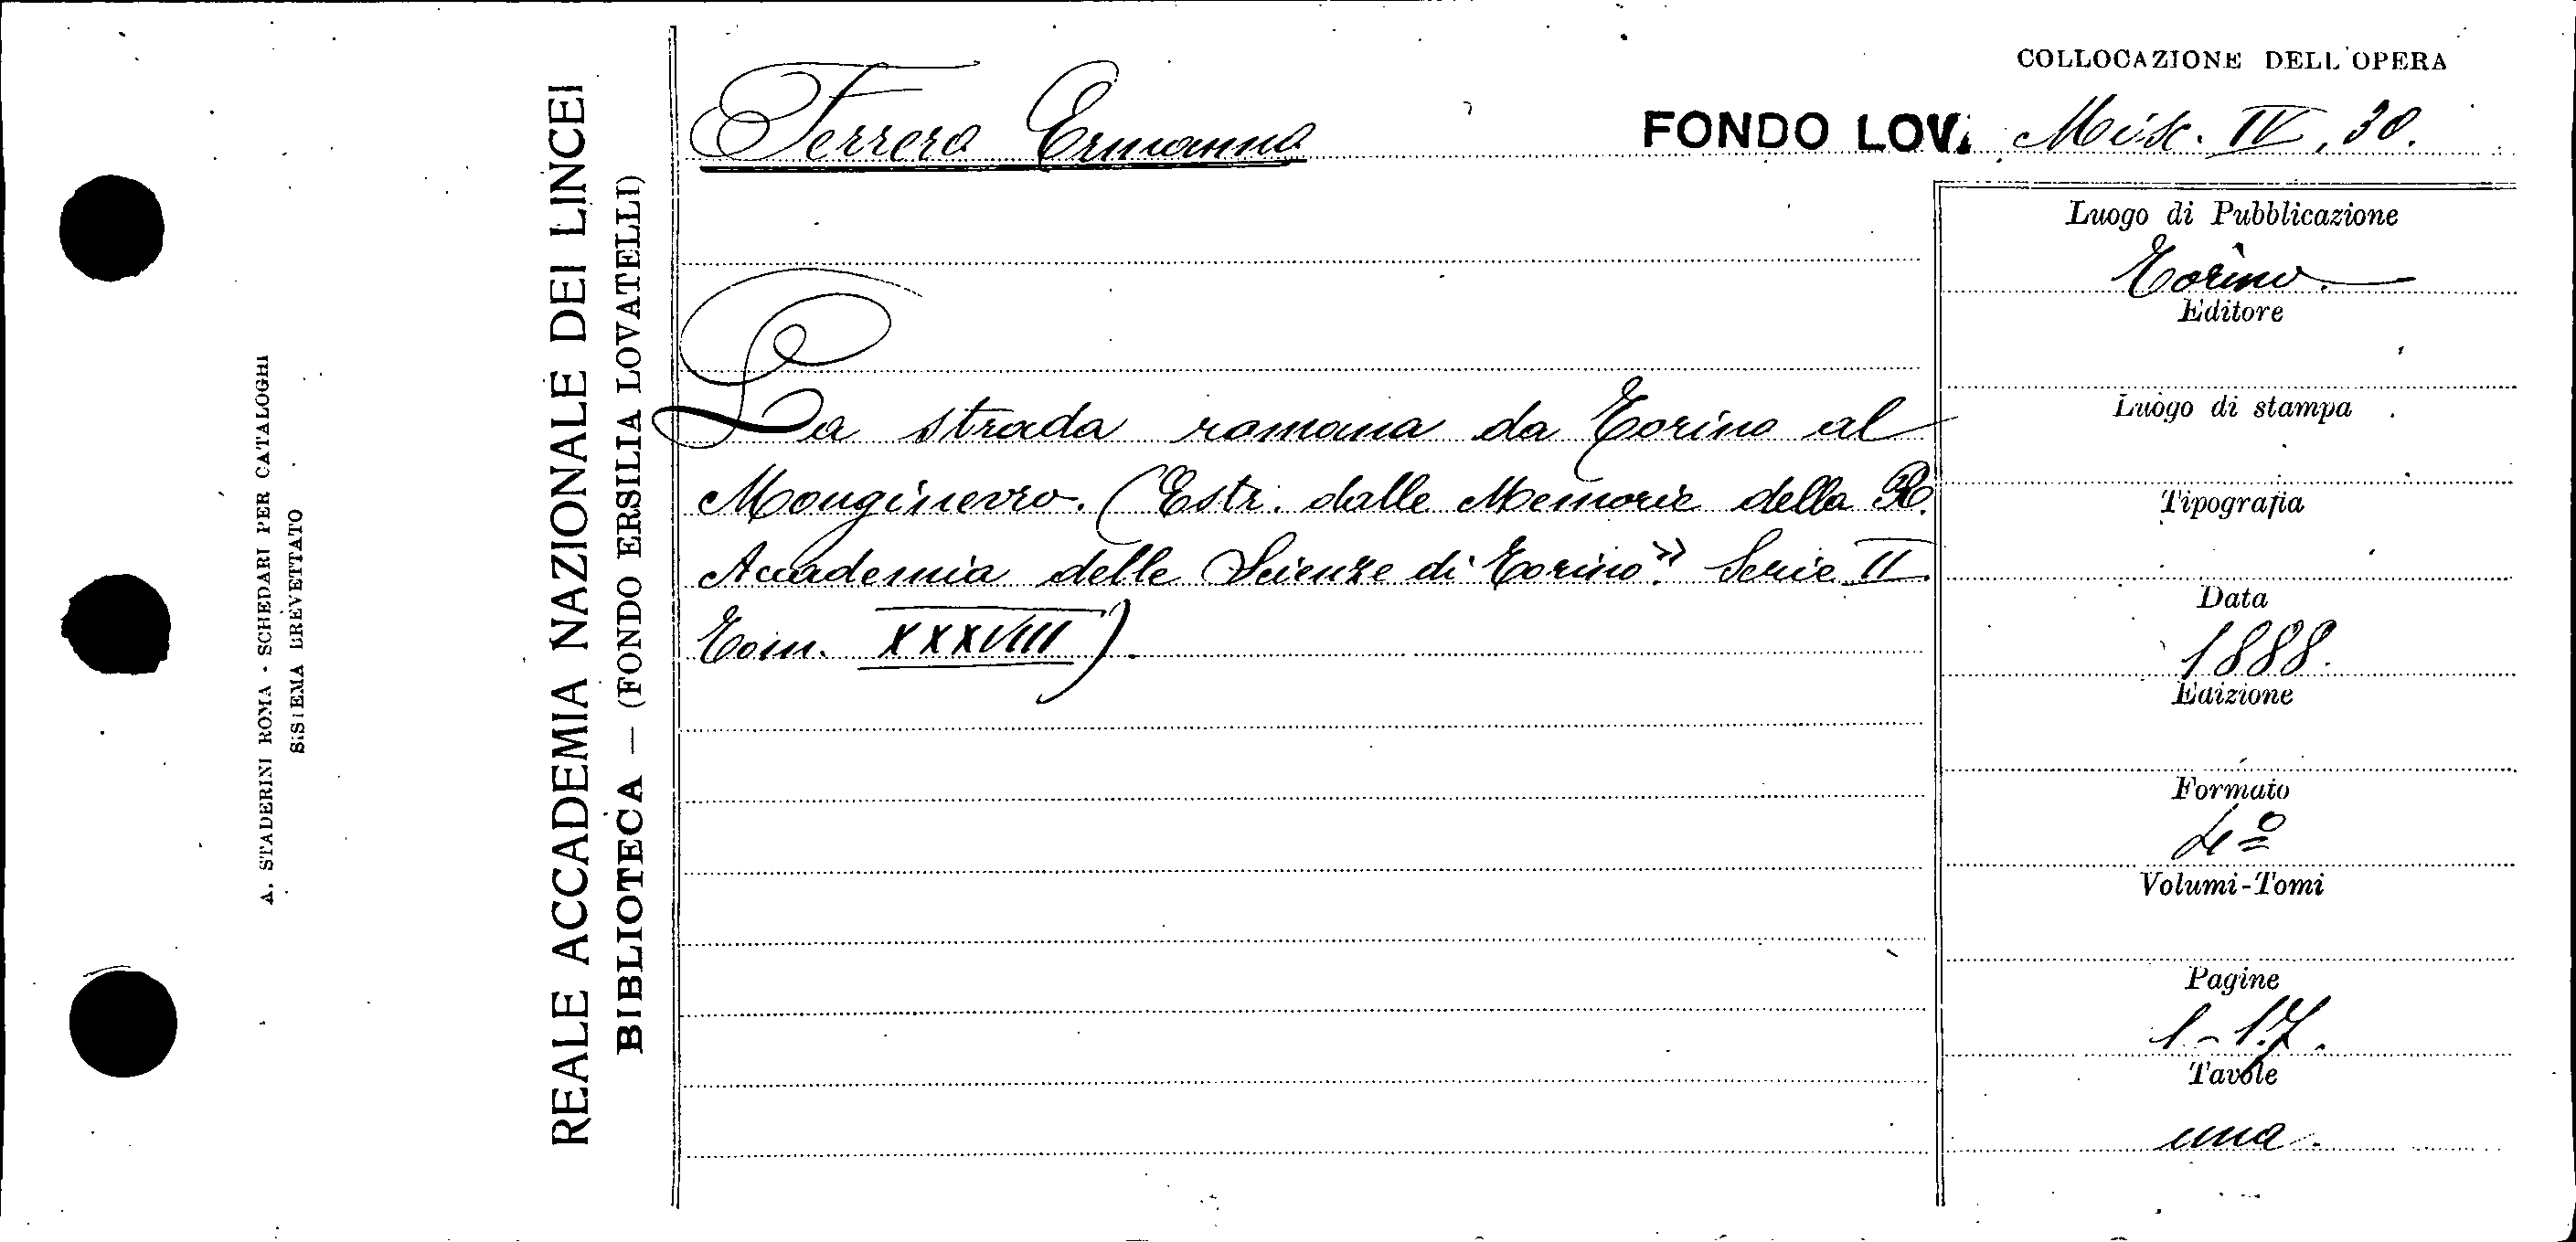 COLLOCAZIONE DELL'OPERA
Ferrero Ermanno
FONDO LOV. Misc. IV, 30.
La strada romana da Torino al
Monginevro. (Estr. dalle Memorie della R.
Accademia delle Scienze di Torino» Serie II
Tom. XXXVIII).
Luogo di Pubblicazione
Torino.
Editore
Luogo di stampa
Tipografia
Data
1888.
Edizione
Formato
4º
Volumi-Tomi
Pagine
1-17.
Tavole
una.
REALE ACCADEMIA NAZIONALE DEI LINCEI
BIBLIOTECA — (FONDO ERSILIA LOVATELLI)
A. STADERINI ROMA - SCHEDARI PER CATALOGHI
SISTEMA BREVETTATO